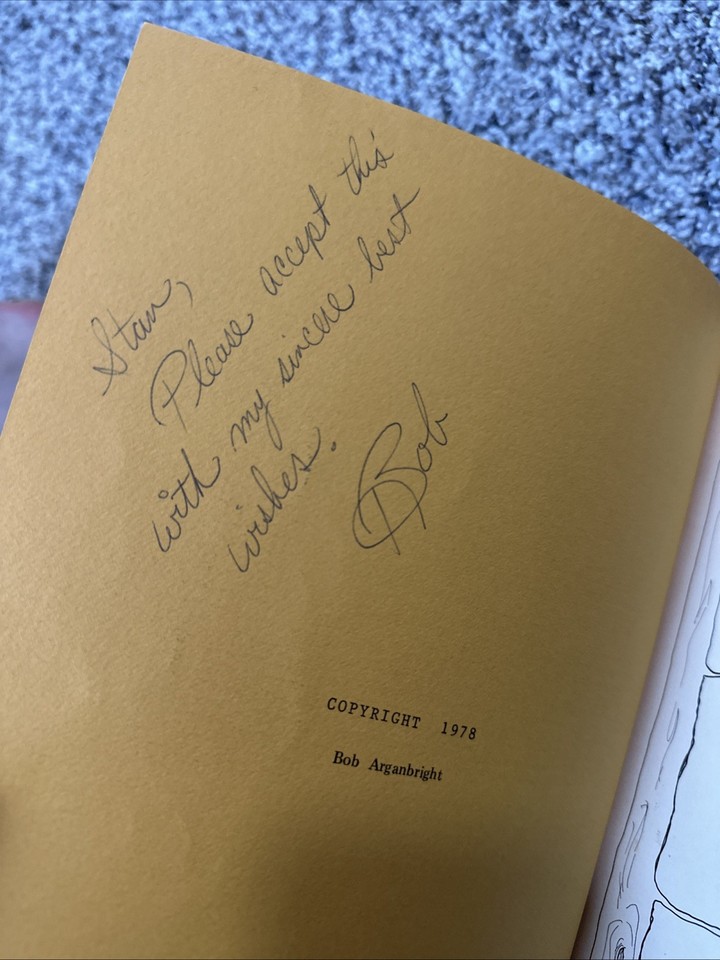 Stan,
Please accept this
with my sincere best
wishes.
Bob
COPYRIGHT 1978
Bob Arganbright